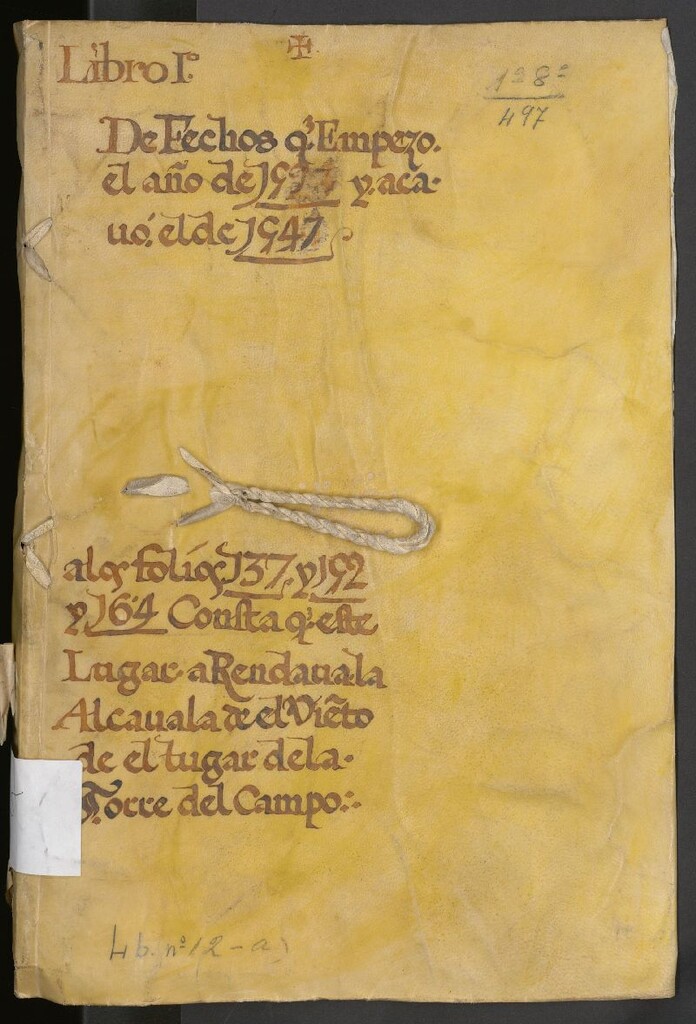 ✠
Libro I.º
1ª 8ª
497
De Fechos q̃ Empezo.
el año de y aca-
uó, el de 1547
a los folios 137, y 152
y 164 Consta q̃ este
Lugar aRendaua la
Alcauala de el Viẽto
de el lugar de la
Torre del Campo:-
Lb. nº 12-a)